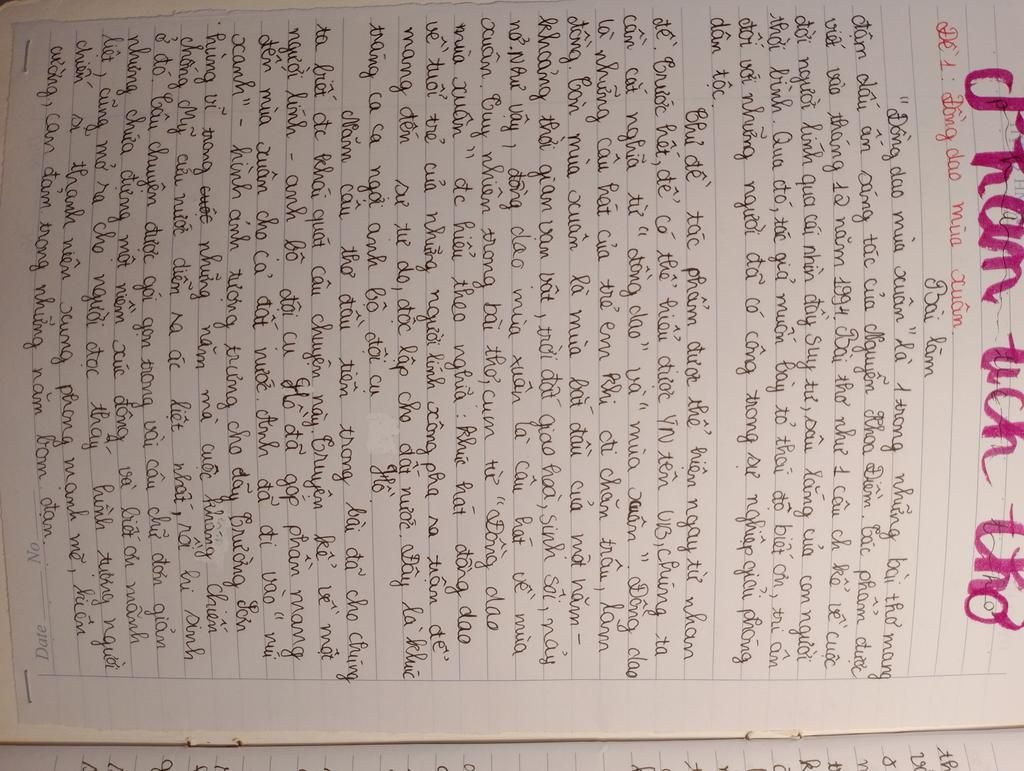 Phân tích thơ
Đề 1: Đồng dao mùa xuân.
Bài làm
"Đồng dao mùa xuân" là 1 trong những bài thơ mang
đậm dấu ấn sáng tác của Nguyễn Khoa Điềm. Tác phẩm được
viết vào tháng 12 năm 1994. Bài thơ như 1 câu ch kể về cuộc
đời người lính qua cái nhìn đầy suy tư, sâu lắng của con người
thời bình. Qua đó, tác giả muốn bày tỏ thái độ biết ơn, tri ân
đối với những người đã có công trong sự nghiệp giải phóng
dân tộc.
Chủ đề tác phẩm được thể hiện ngay từ nhan
đề. Trước hết, để có thể hiểu được YN tên VB, chúng ta
cần cắt nghĩa từ "đồng dao" và "mùa xuân". Đồng dao
là những câu hát của trẻ em khi đi chăn trâu, làm
đồng. Còn mùa xuân là mùa bắt đầu của một năm -
khoảng thời gian vạn vật, trời đất giao hoà, sinh sôi, nảy
nở. Như vậy, đồng dao mùa xuân là câu hát về mùa
xuân. Tuy nhiên trong bài thơ, cụm từ "Đồng dao
mùa xuân" đc hiểu theo nghĩa: khúc hát đồng dao
về tuổi trẻ của những người lính xông pha ra trận để
mang đến sự tự do, độc lập cho đất nước. Đây là khúc
tráng ca ca ngợi anh bộ đội cụ Hồ.
Năm câu thơ đầu tiên trong bài đã cho chúng
ta biết đc khái quát câu chuyện này. Truyện kể về một
người lính - anh bộ đội cụ Hồ đã góp phần mang
đến mùa xuân cho cả đất nước. Anh đã đi vào "núi
xanh" - hình ảnh tượng trưng cho dãy Trường Sơn
hùng vĩ trong những năm mà cuộc kháng chiến
chống Mỹ cứu nước diễn ra ác liệt nhất, rồi hi sinh
ở đó. Câu chuyện được gói gọn trong vài câu chữ đơn giản
nhưng chứa đựng một niềm xúc động và biết ơn mãnh
liệt, cũng mở ra cho người đọc thấy hình tượng người
chiến sĩ thanh niên xung phong mạnh mẽ, kiên
cường, can đảm trong những năm bom đạn.
No
Date